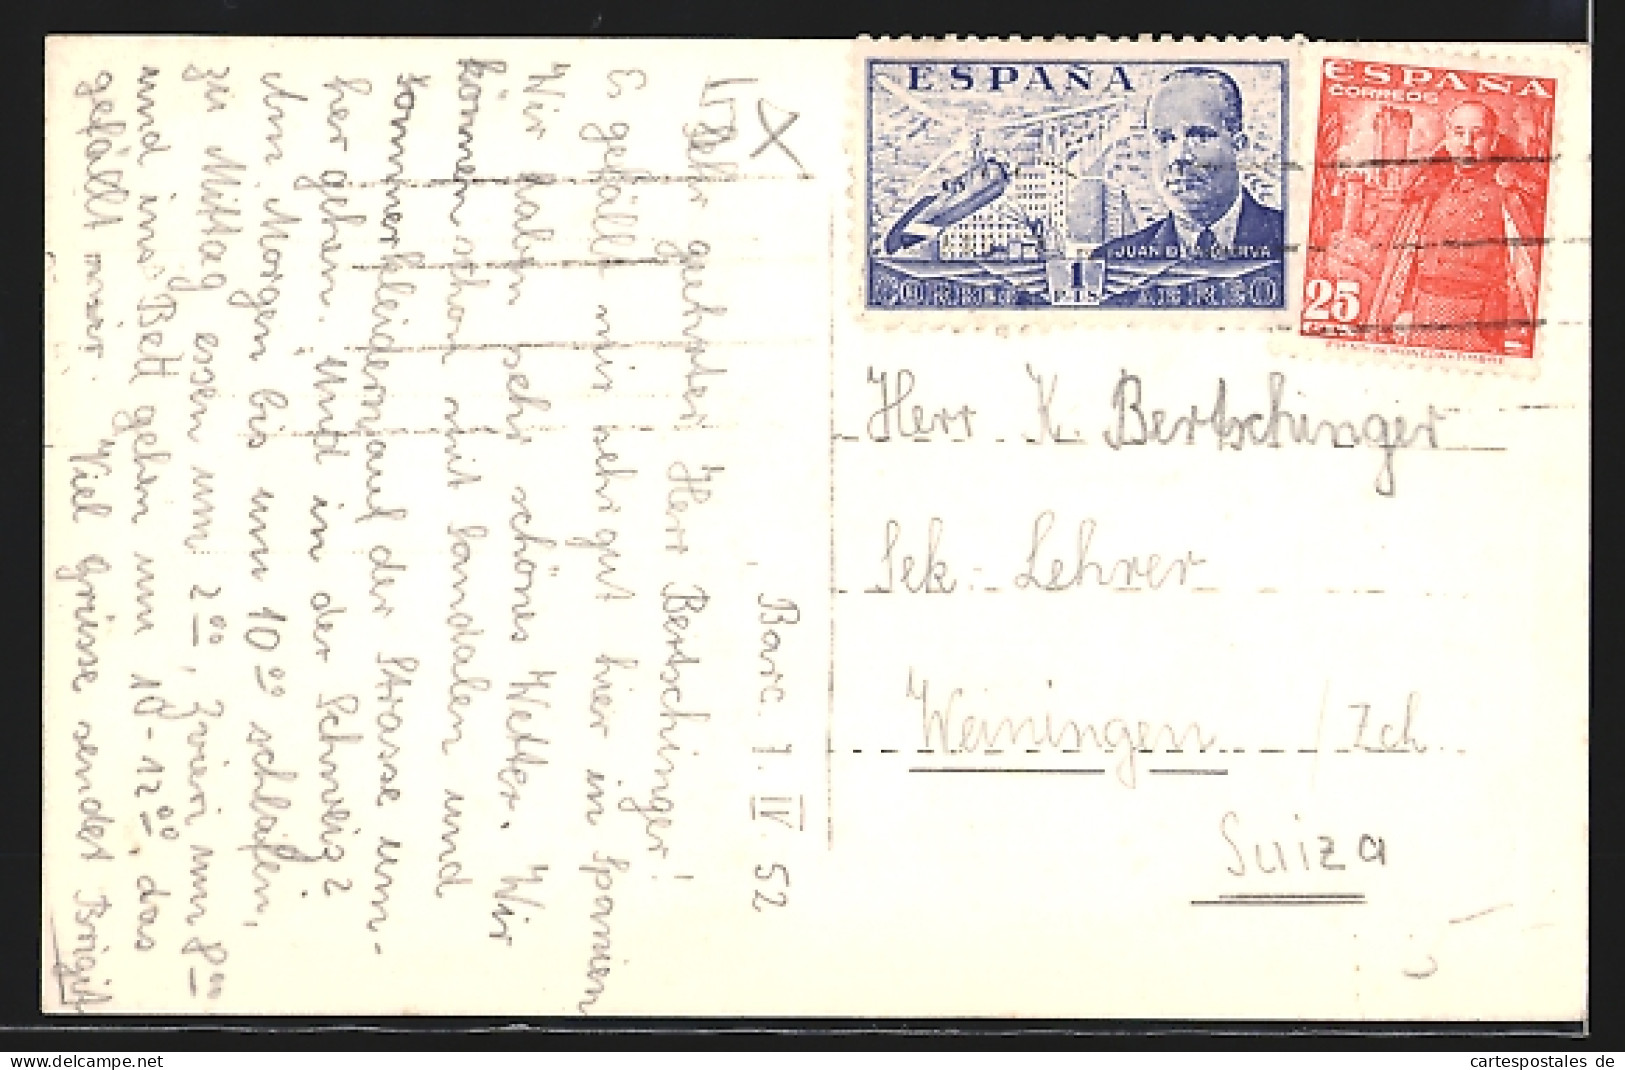 Barc. 1. IV. 52
Sehr geehrter Herr Bertschinger!
Es gefällt mir sehr gut hier in Spanien
Wir haben sehr schönes Wetter. Wir
können schon mit Sandalen und
Sommerkleidern auf der Strasse um-
her gehen. Und in der Schweiz?
Am Morgen bis um 10 00 schlafen,
zu Mittag essen um 2 00, Zvieri um 8 00
und ins Bett gehen um 10 - 12 00, das
gefällt mir. Viel Grüsse sendet Brigit
ESPAÑA
JUAN DE LA CIERVA
1
PTS
CORREO AEREO
ESPAÑA
CORREOS
25
Herr K. Bertschinger
Sek. Lehrer
Weiningen / Zch
Suiza
cartespostales de